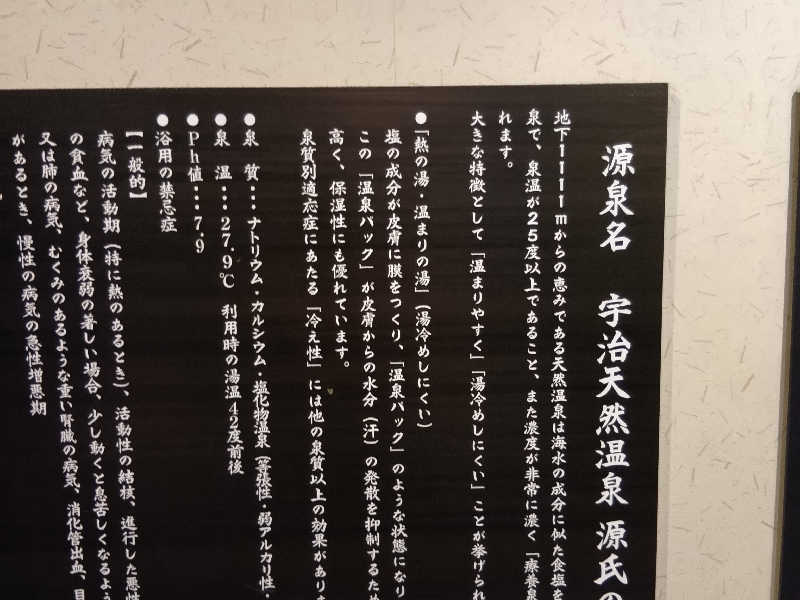 源泉名 宇治天然温泉 源氏の
地下1111mからの恵みである天然温泉は海水の成分に似た食塩を
泉で、泉温が25度以上であること、また濃度が非常に濃く「療養泉
れます。
大きな特徴として「温まりやすく」「湯冷めしにくい」ことが挙げられ
●「熱の湯・温まりの湯」(湯冷めしにくい)
塩の成分が皮膚に膜をつくり、「温泉パック」のような状態になり
この「温泉パック」が皮膚からの水分(汗)の発散を抑制するため
高く、保湿性にも優れています。
泉質別適応症にあたる「冷え性」には他の泉質以上の効果がありま
●泉 質・・・ナトリウム・カルシウム・塩化物温泉(等張性・弱アルカリ性・
●泉 温・・・27.9℃ 利用時の湯温42度前後
●Ph値・・・7.9
●浴用の禁忌症
【一般的】
病気の活動期(特に熱のあるとき)、活動性の結核、進行した悪性
の食血など、身体衰弱の著しい場合、少し動くと息苦しくなるよう
又は肺の病気、むくみのあるような重い腎臓の病気、消化管出血、目
があるとき、慢性の病気の急性増悪期